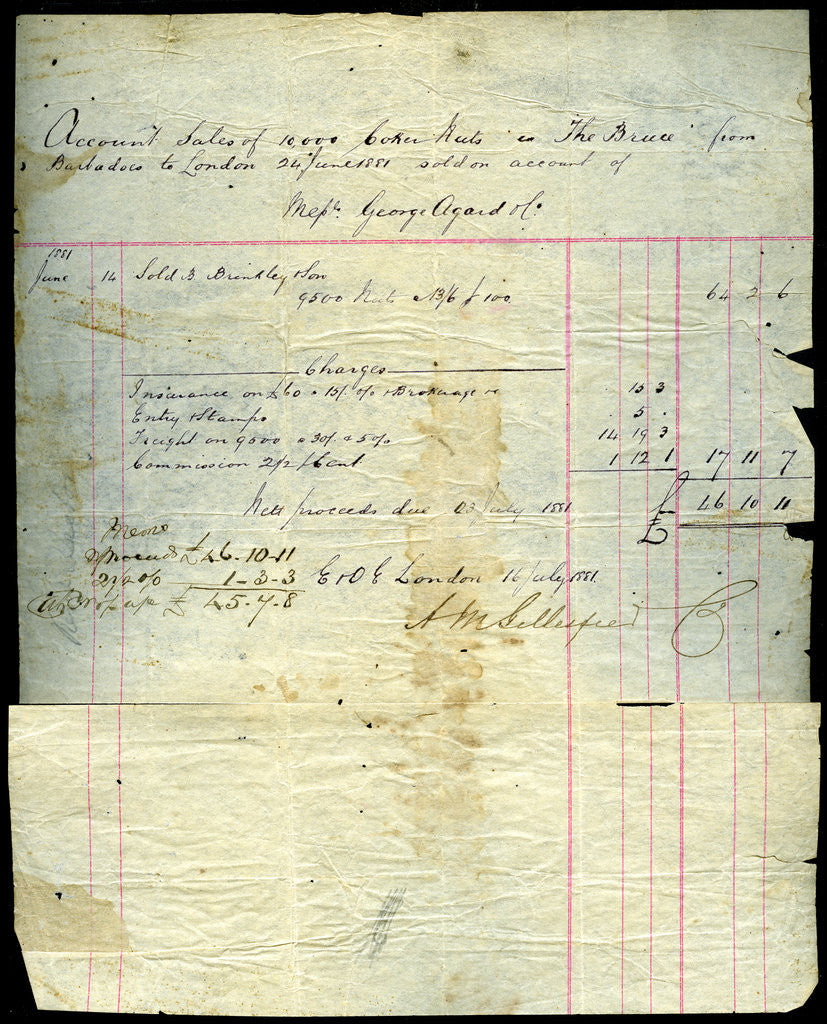 Account Sales of 10,000 Coker Nuts ex "The Bruce" from
Barbadoes to London 24 June 1881 sold on account of
Messrs. George Agard & Co.
1881
June 14 Sold B. Brinkley & Son
9500 Nuts @ 13/6 p 100. 64 2 6
Charges
Insurance on £60 @ 15/. % & Brokerage 15 3
Entry & Stamps . 5 .
Freight on 9500 @ 30/. & 5% 14 19 3
Commission 2½ p Cent. 1 12 1 17 11 7
Nett proceeds due 23 July 1881 £ 46 10 11
Memo
Proceeds £46-10-11
2½% 1-3-3 E & O E London 16 July 1881.
£45-7-8
A McGillespie Co